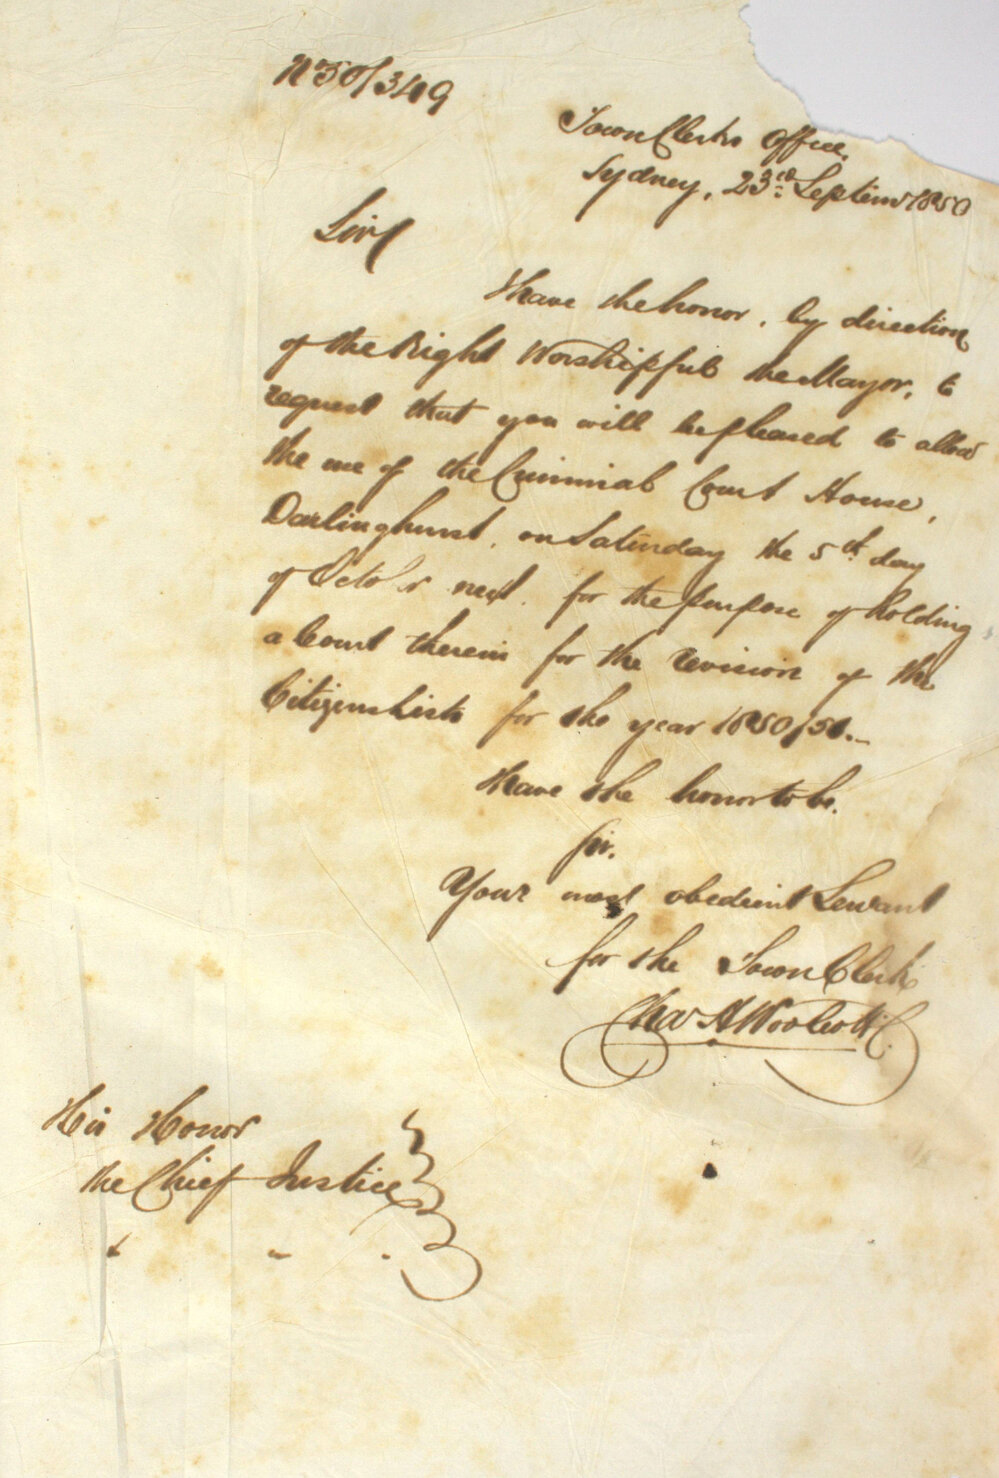 No 50/349
Town Clerks Office,
Sydney, 23rd Septemr 1850
Sir/
I have the honor, by direction
of the Right Worshipful the Mayor, to
request that you will be pleased to allow
the use of the Criminal Court House,
Darlinghurst, on Saturday the 5th day
of October next, for the purpose of holding
a Court therein for the revision of the
Citizens Lists for the year 1850/51.
I have the honor to be,
Sir,
Your most obedient Servant
for the Town Clerk
Chas H Woolcott
His Honor
the Chief Justice